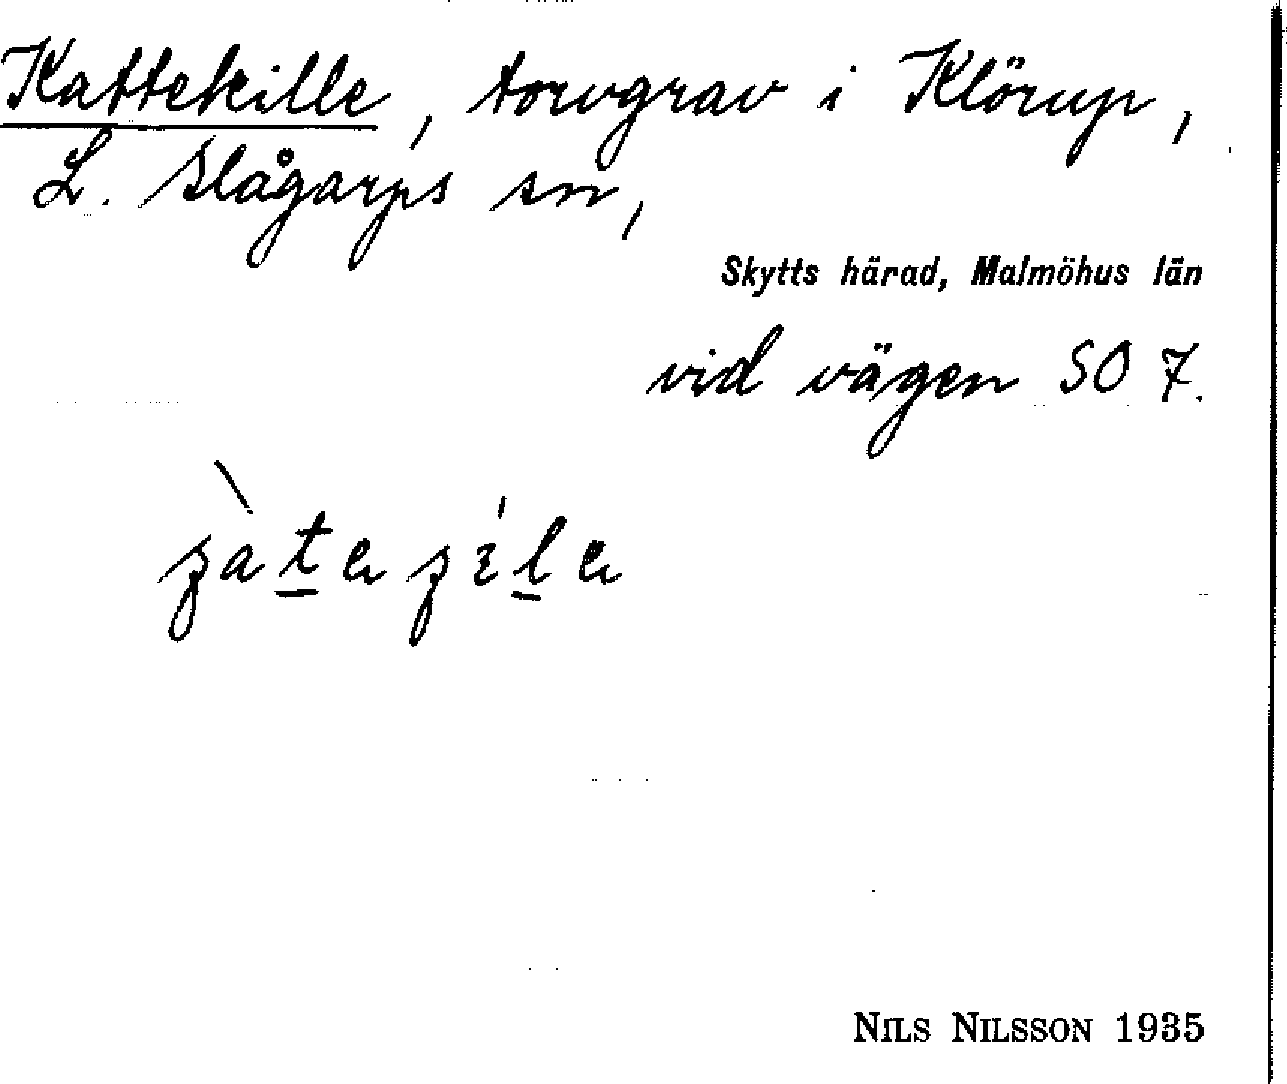 Kattekille, torvgrav i Klörup,
L. Slågarps sn,
Skytts härad, Malmöhus län
vid vägen SO 7.
NILS NILSSON 1935